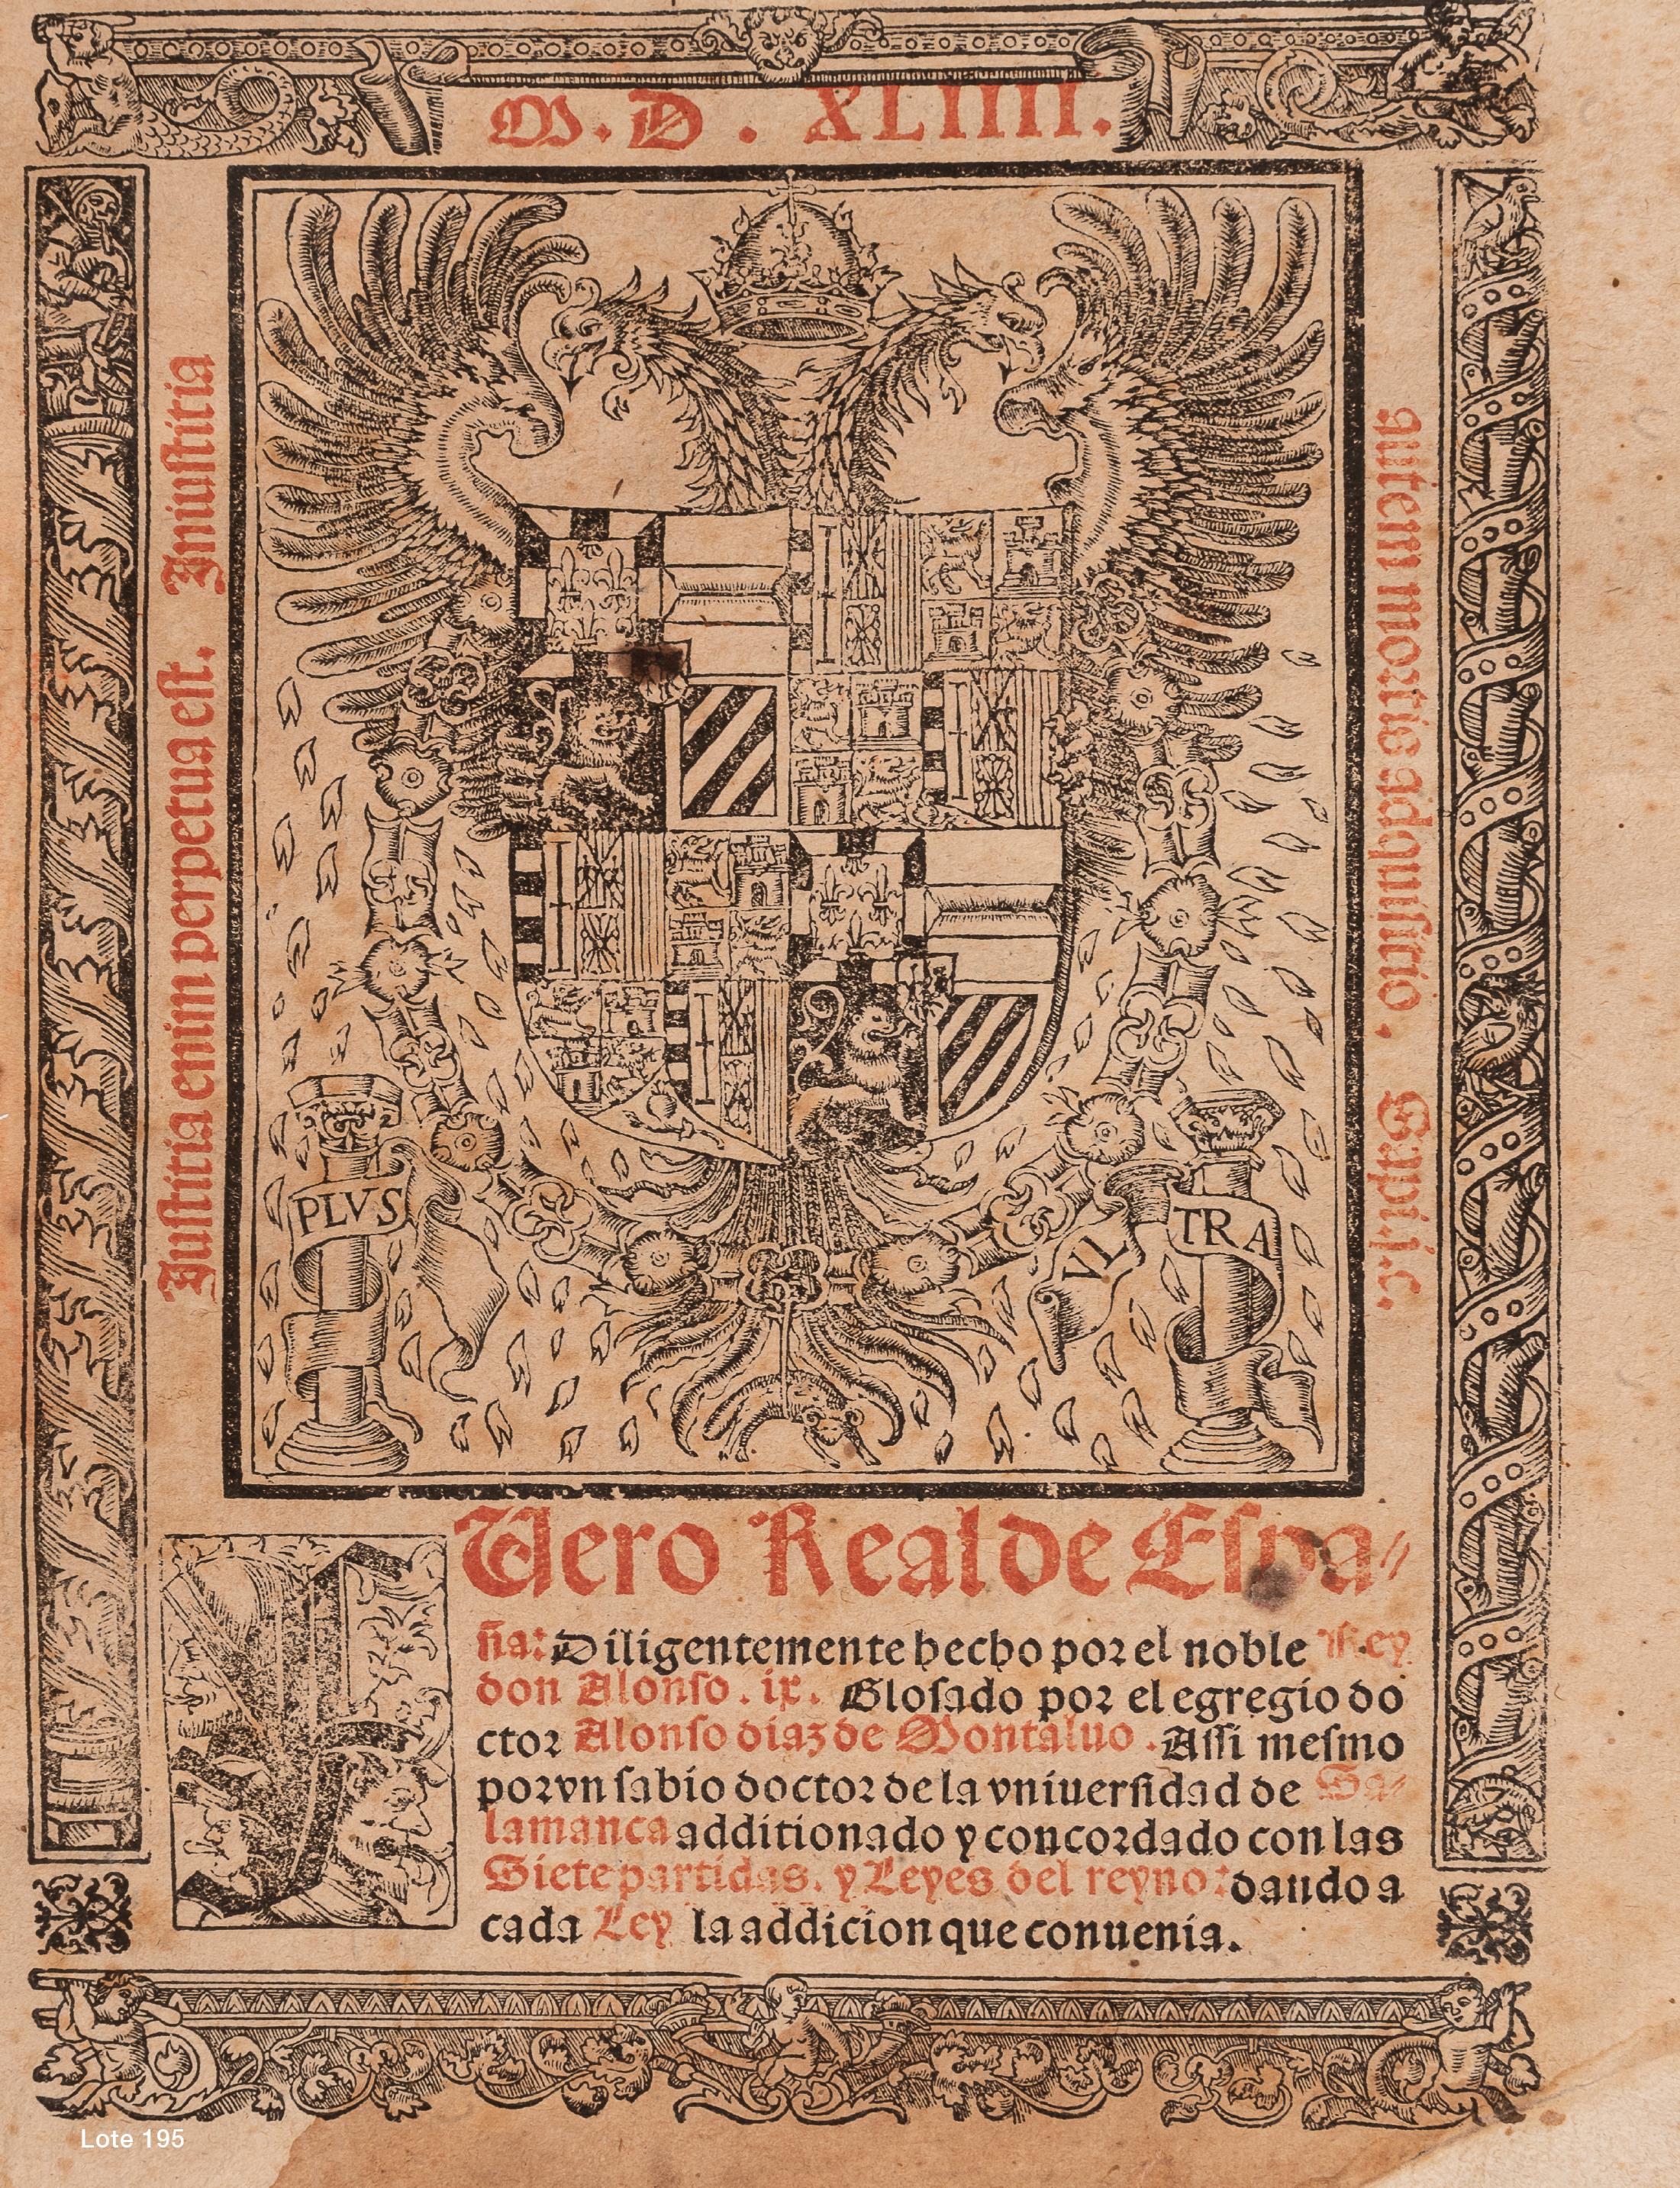 M.D.XLIIII.
Iuſtitia enim perpetua eſt. Iniuſtitia
autem mortis adquiſitio. Sapi.j.c.
PLVS
VL
TRA
FUero Real de Eſpa⸗
ña: Diligentemente hecho por el noble Rey
don Alonſo .ix. Gloſado por el egregio do
ctor Alonſo diaz de Montaluo. Aſſi meſmo
por vn ſabio doctor de la vniuerſidad de Sa⸗
lamanca additionado y concordado con las
Siete partidas. y Leyes del reyno: dando a
cada Ley la addicion que conuenia.
Lote 195